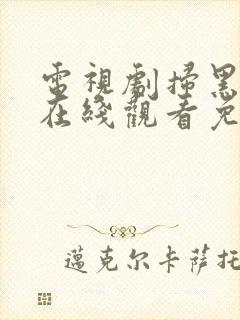 電視劇掃黑
在綫觀看免
邁克尔卡薩托